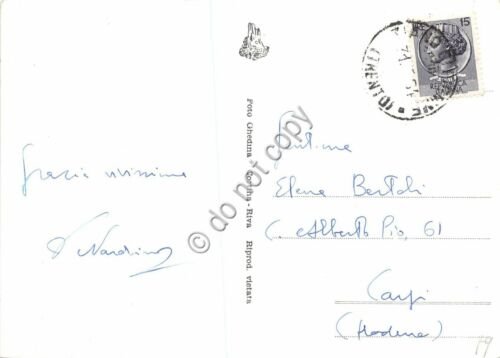 Grazie vivissime
Nardino
Foto Ghedina - Cortina - Riva Riprod. vietata
do not copy
15
(TRENTO)
Gent.ma
Elena Bertoli
C. Alberto Pio, 61
Carpi
(Modena)